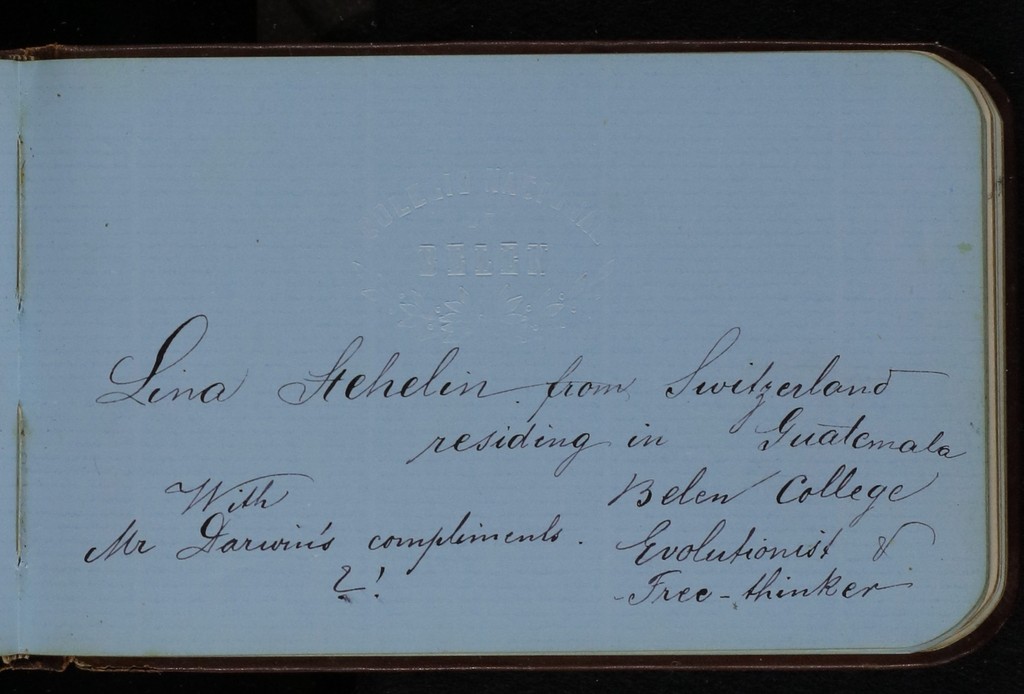 BELEN
Lina Stehelin from Switzerland
residing in Guatemala
Belen College
Evolutionist &
Free-thinker
With
Mr Darwin's compliments.
?!